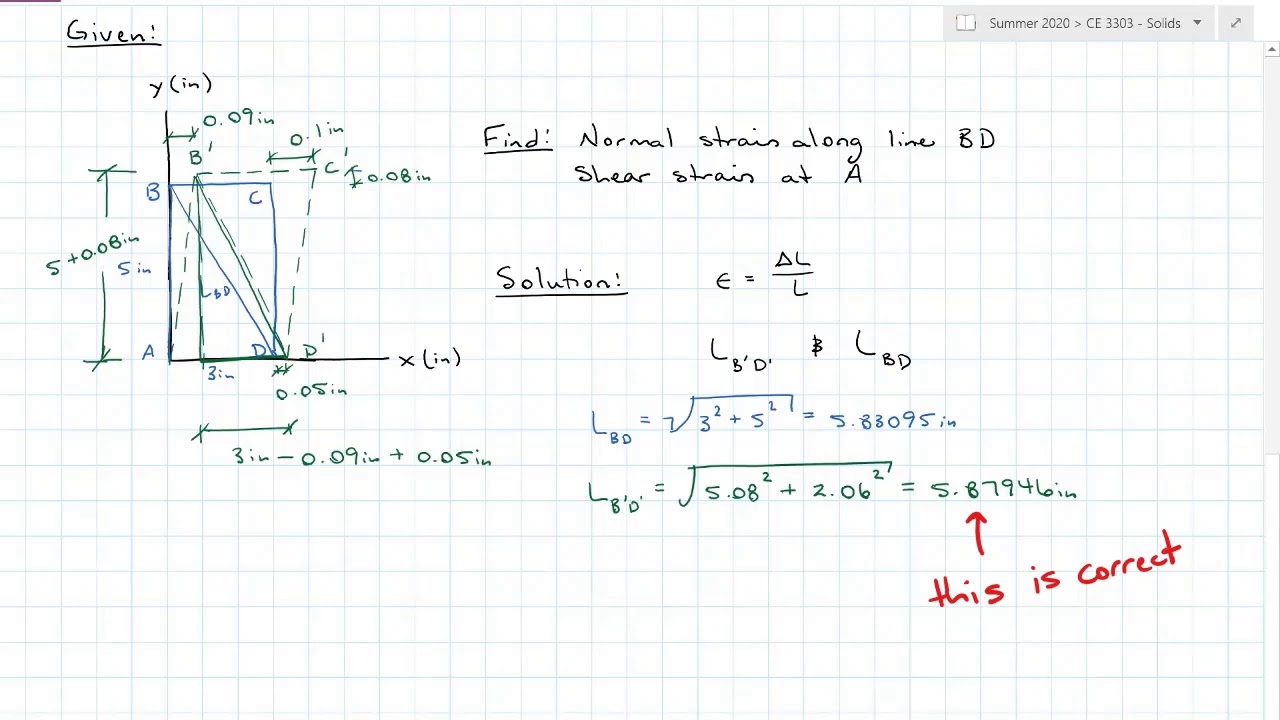 Summer 2020 > CE 3303 - Solids
Given:
y (in)
0.09in
0.1in
B'
C'
0.08in
B
C
5 +0.08in
5 in
L BD
A
D
D'
x (in)
3in
0.05in
3in - 0.09in + 0.05in
Find: Normal strain along line BD
Shear strain at A
Solution: ϵ = ΔL / L
L B'D' & L BD
L BD = √(3² + 5²) = 5.83095in
L B'D' = √(5.08² + 2.06²) = 5.87946in
this is correct